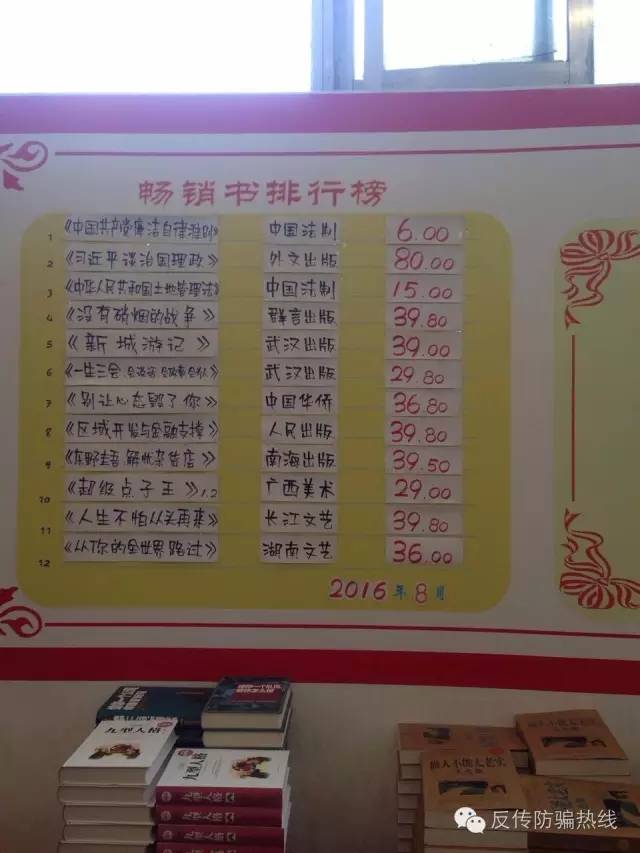 畅销书排行榜
1 《中国共产党廉洁自律准则》 中国法制 6.00
2 《习近平谈治国理政》 外文出版 80.00
3 《中华人民共和国土地管理法》 中国法制 15.00
4 《没有硝烟的战争》 群言出版 39.80
5 《新城游记》 武汉出版 39.00
6 《一生三会 会说话 会做事 会做人》 武汉出版 29.80
7 《别让心态毁了你》 中国华侨 36.80
8 《区域开发与金融支撑》 人民出版 39.80
9 《东野圭吾 解忧杂货店》 南海出版 39.50
10 《超级点子王》1.2 广西美术 29.00
11 《人生不怕从头再来》 长江文艺 39.80
12 《从你的全世界路过》 湖南文艺 36.00
2016年8月
九型人格
九型人格
九型人格
九型人格
九型人格
做人不能太老实
做人不能太老实
反传防骗热线